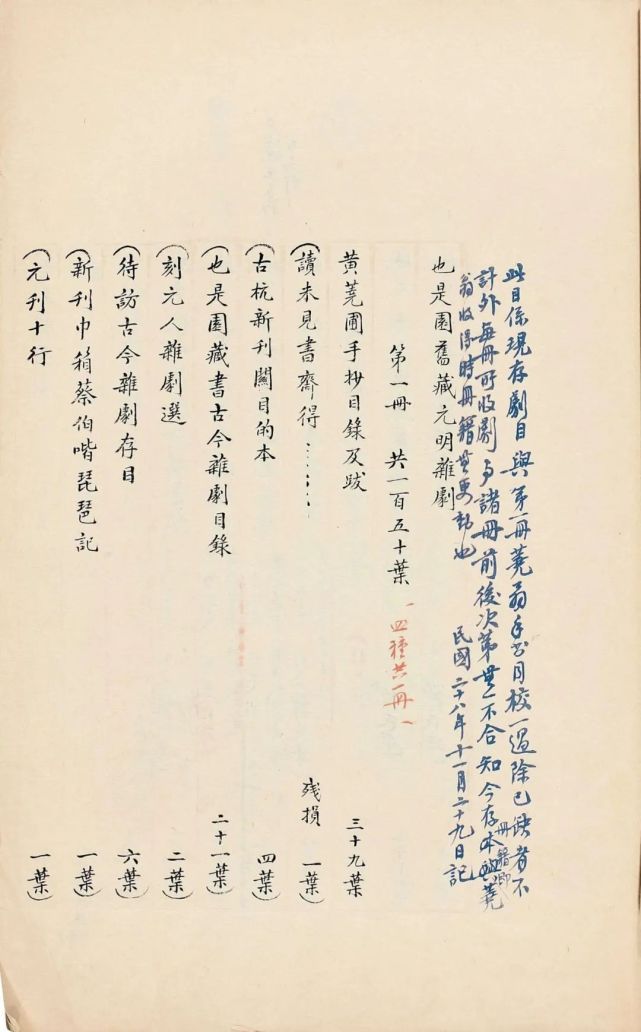 此目係現存劇目與第一冊蕘翁手書目校一過除已缺者不
計外每冊所收劇與諸冊前後次第無一不合知今存本冊籍即蕘
翁收得時冊籍無更動也 民國二十八年十一月二十九日記
也是園舊藏元明雜劇
第一冊 共一百五十葉 四種共一冊
黃蕘圃手抄目錄及跋 三十九葉
(讀未見書齋得…… 殘損 一葉)
(古杭新刊關目的本 四葉)
(也是園藏書古今雜劇目錄 二十一葉)
(刻元人雜劇選 二葉)
(待訪古今雜劇存目 六葉)
(新刊巾箱蔡伯喈琵琶記 一葉)
(元刊十行 一葉)